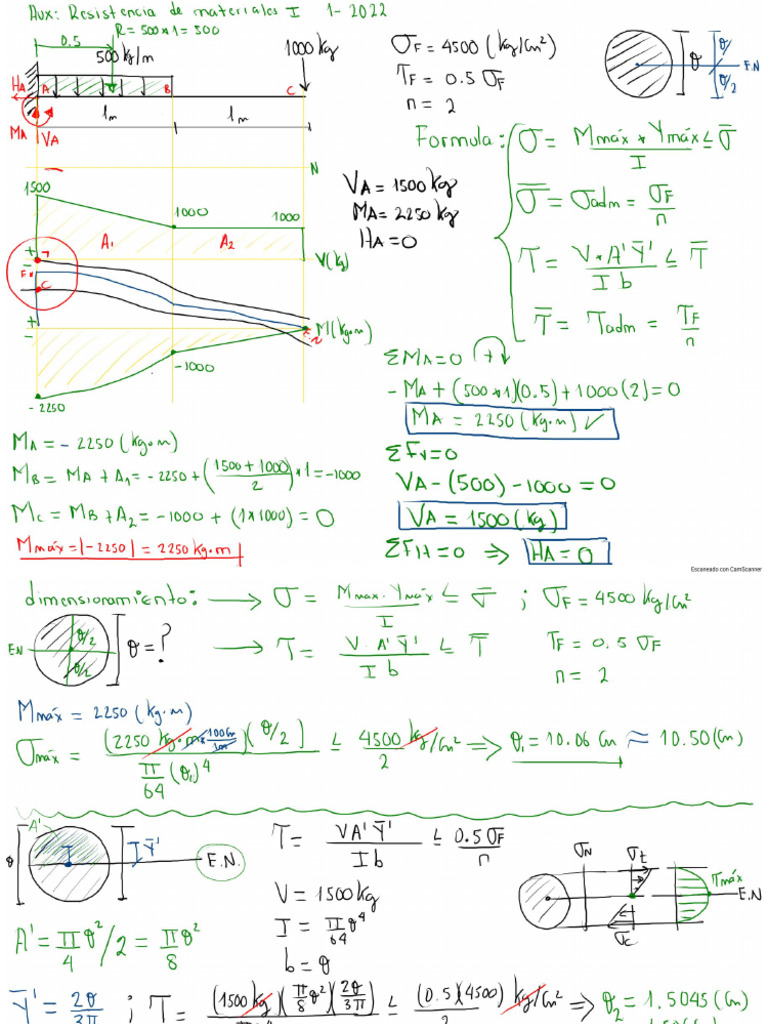 Aux: Resistencia de materiales I 1-2022
R = 500*1 = 500
0.5
500 kg/m
1000 kg
HA
A
B
C
MA
VA
1m
1m
N
1500
1000
1000
A1
A2
+
-
V(kg)
F.N
C
+
-
M(kg·m)
-1000
-2250
σF = 4500 (kg/cm²)
TF = 0.5 σF
n = 2
θ
θ/2
θ/2
E.N
Formula: σ = Mmáx * Ymáx / I ≤ σ̅
σ̅ = σadm = σF / n
T = V * A' Y̅' / I b ≤ T̅
T̅ = Tadm = TF / n
VA = 1500 kg
MA = 2250 kg
HA = 0
ΣMA = 0 +
-MA + (500*1)(0.5) + 1000(2) = 0
MA = 2250 (kg·m) ✓
ΣFV = 0
VA - (500) - 1000 = 0
VA = 1500 (kg)
ΣFH = 0 ⇒ HA = 0
MA = -2250 (kg·m)
MB = MA + A1 = -2250 + ((1500 + 1000) / 2) * 1 = -1000
MC = MB + A2 = -1000 + (1*1000) = 0
Mmáx = |-2250| = 2250 kg·m
Escaneado con CamScanner
dimensionamiento: → σ = Mmax · Ymáx / I ≤ σ̅ ; σF = 4500 kg/cm²
EN
θ/2
θ/2
θ = ?
→ T = V · A' Y̅' / I b ≤ T̅
TF = 0.5 σF
n = 2
Mmáx = 2250 (kg·m)
σmáx = (2250 kg·m * 100cm/1m)(θ/2) / π/64 (θ1)⁴ ≤ 4500 kg/cm² / 2 ⇒ θ1 = 10.06 cm ≈ 10.50 (cm)
A'
θ
I Y̅'
E.N.
T = VA' Y̅' / I b ≤ 0.5 σF / n
V = 1500 kg
I = π/64 θ⁴
b = θ
σN
σt
σc
Tmáx
E.N
A' = π/4 θ²/2 = πθ²/8
Y̅' = 2θ/3π ; T = (1500 kg)(π/8 θ²)(2θ/3π) ≤ (0.5)(4500) kg/cm² / 2 ⇒ θ2 = 1.5045 (cm)